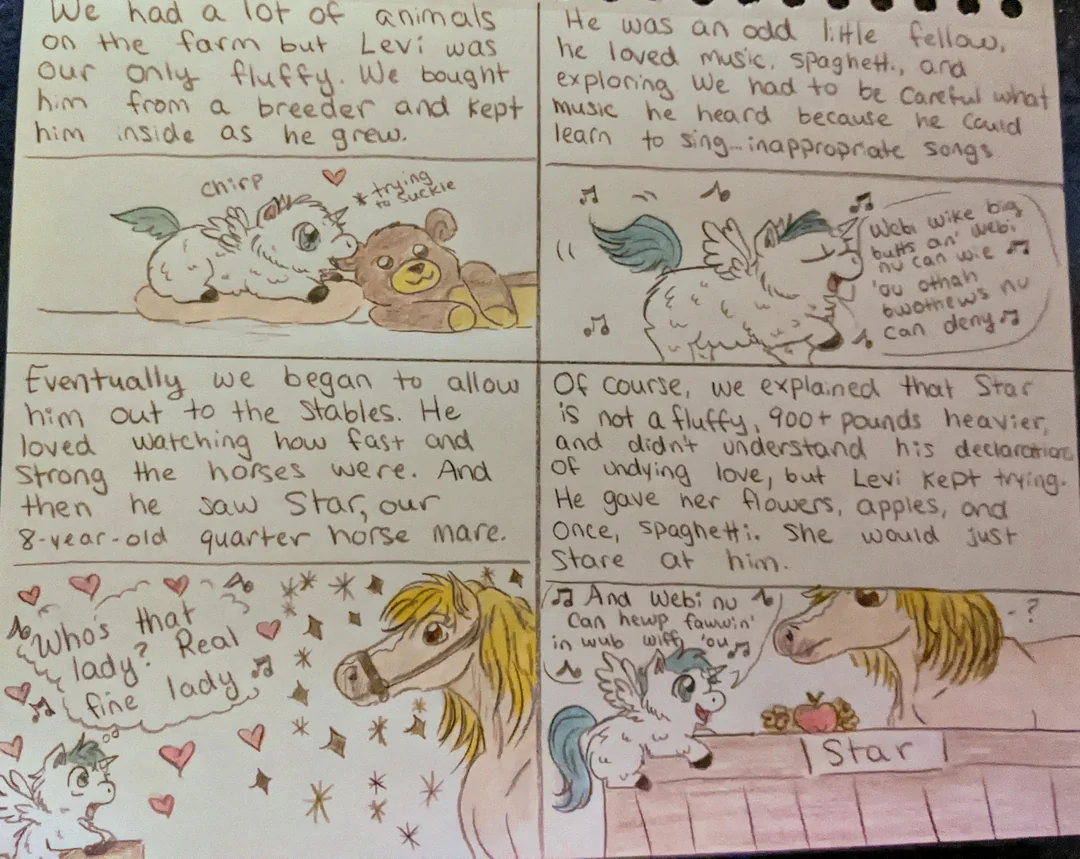 We had a lot of animals
on the farm but Levi was
our only fluffy. We bought
him from a breeder and kept
him inside as he grew.
chirp
*trying
to suckle
He was an odd little fellow,
he loved music, spaghetti, and
exploring We had to be careful what
music he heard because he could
learn to sing... inappropriate songs
Webi wike big
butts an' webi
nu can wie
'ou othah
bwothews nu
can deny
Eventually we began to allow
him out to the stables. He
loved watching how fast and
strong the horses were. And
then he saw Star, our
8-year-old quarter horse mare.
Who's that
lady? Real
fine lady
Of course, we explained that Star
is not a fluffy, 900+ pounds heavier,
and didn't understand his declarations
of undying love, but Levi kept trying.
He gave her flowers, apples, and
once, spaghetti. She would just
stare at him.
And Webi nu
can hewp fawwin'
in wub wiff 'ou
-?
Star